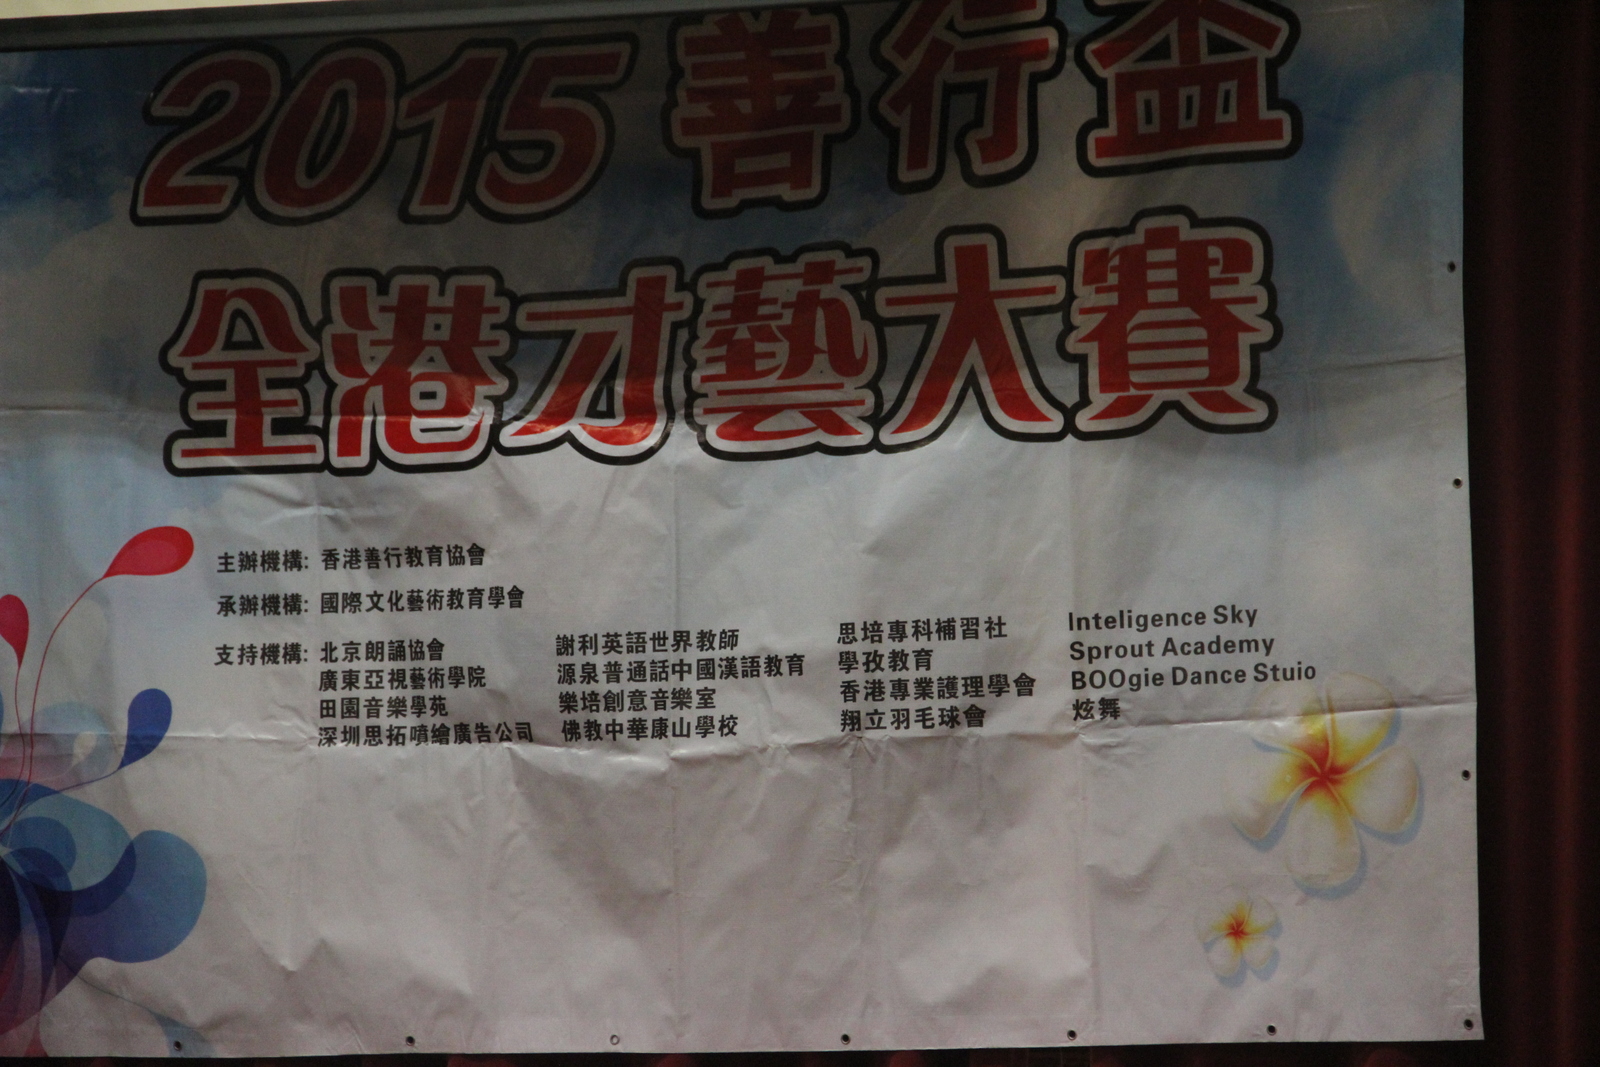 2015 善行盃
全港才藝大賽
主辦機構: 香港善行教育協會
承辦機構: 國際文化藝術教育學會
支持機構: 北京朗誦協會
廣東亞視藝術學院
田園音樂學苑
深圳思拓噴繪廣告公司
謝利英語世界教師
源泉普通話中國漢語教育
樂培創意音樂室
佛教中華康山學校
思培專科補習社
學孜教育
香港專業護理學會
翔立羽毛球會
Inteligence Sky
Sprout Academy
BOOgie Dance Stuio
炫舞